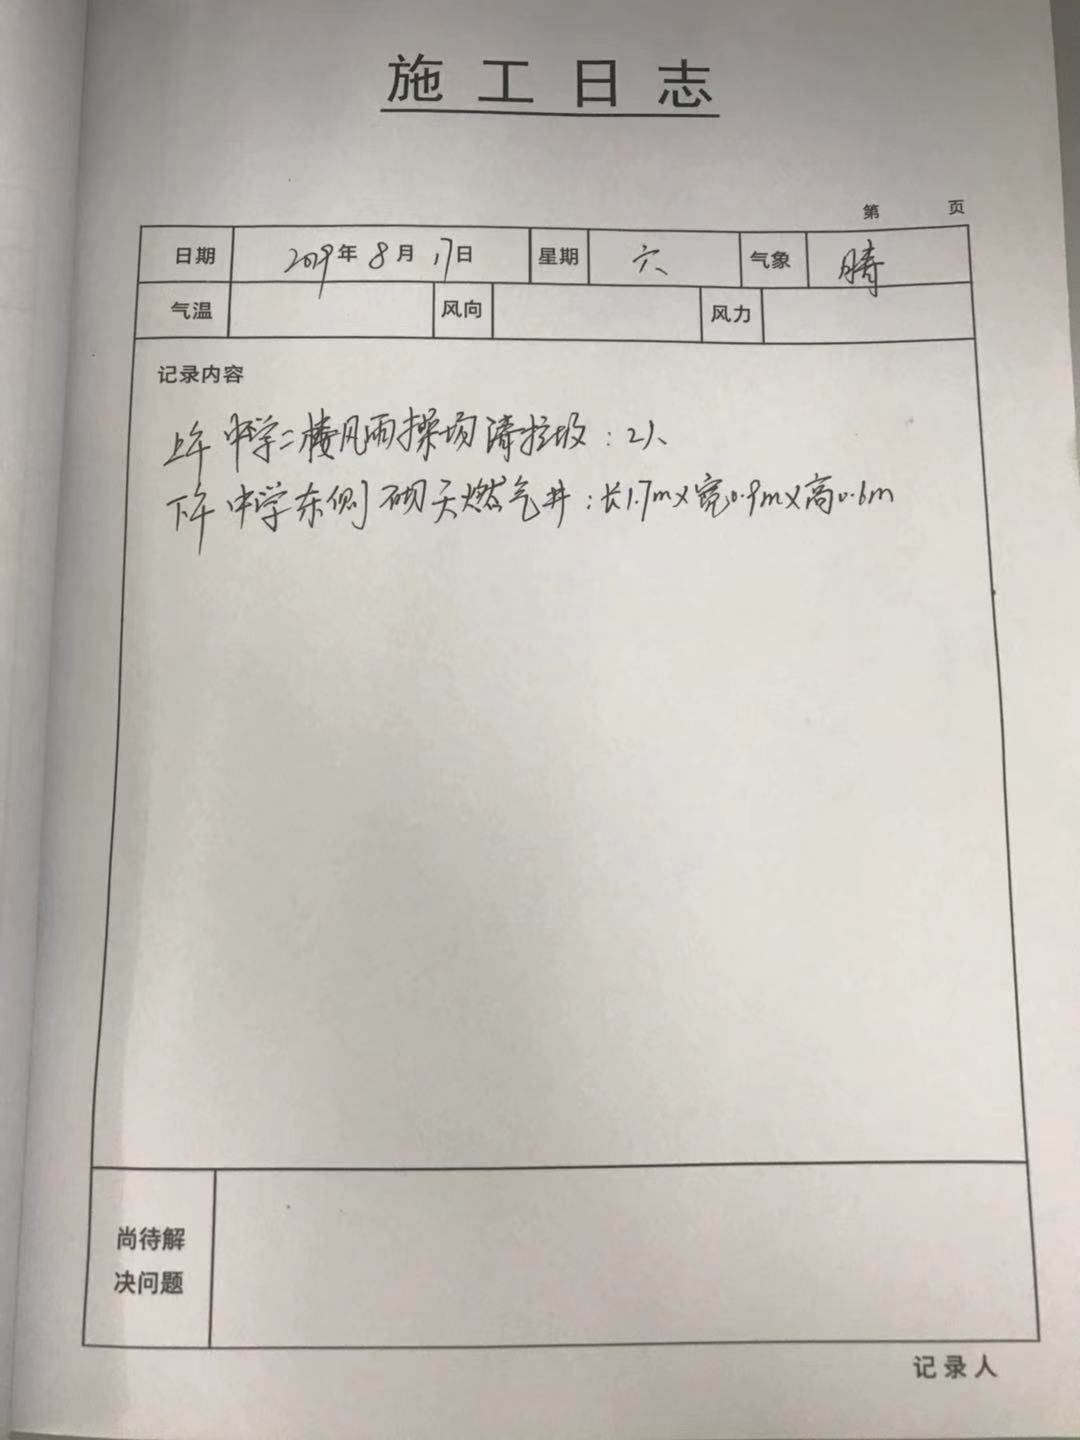 施工日志
第 页
日期 2019年8月17日 星期 六 气象 晴
气温 风向 风力
记录内容
上午 中学二楼风雨操场清垃圾：2人
下午 中学东侧砌天燃气井：长1.7m×宽0.9m×高0.6m
尚待解
决问题
记录人